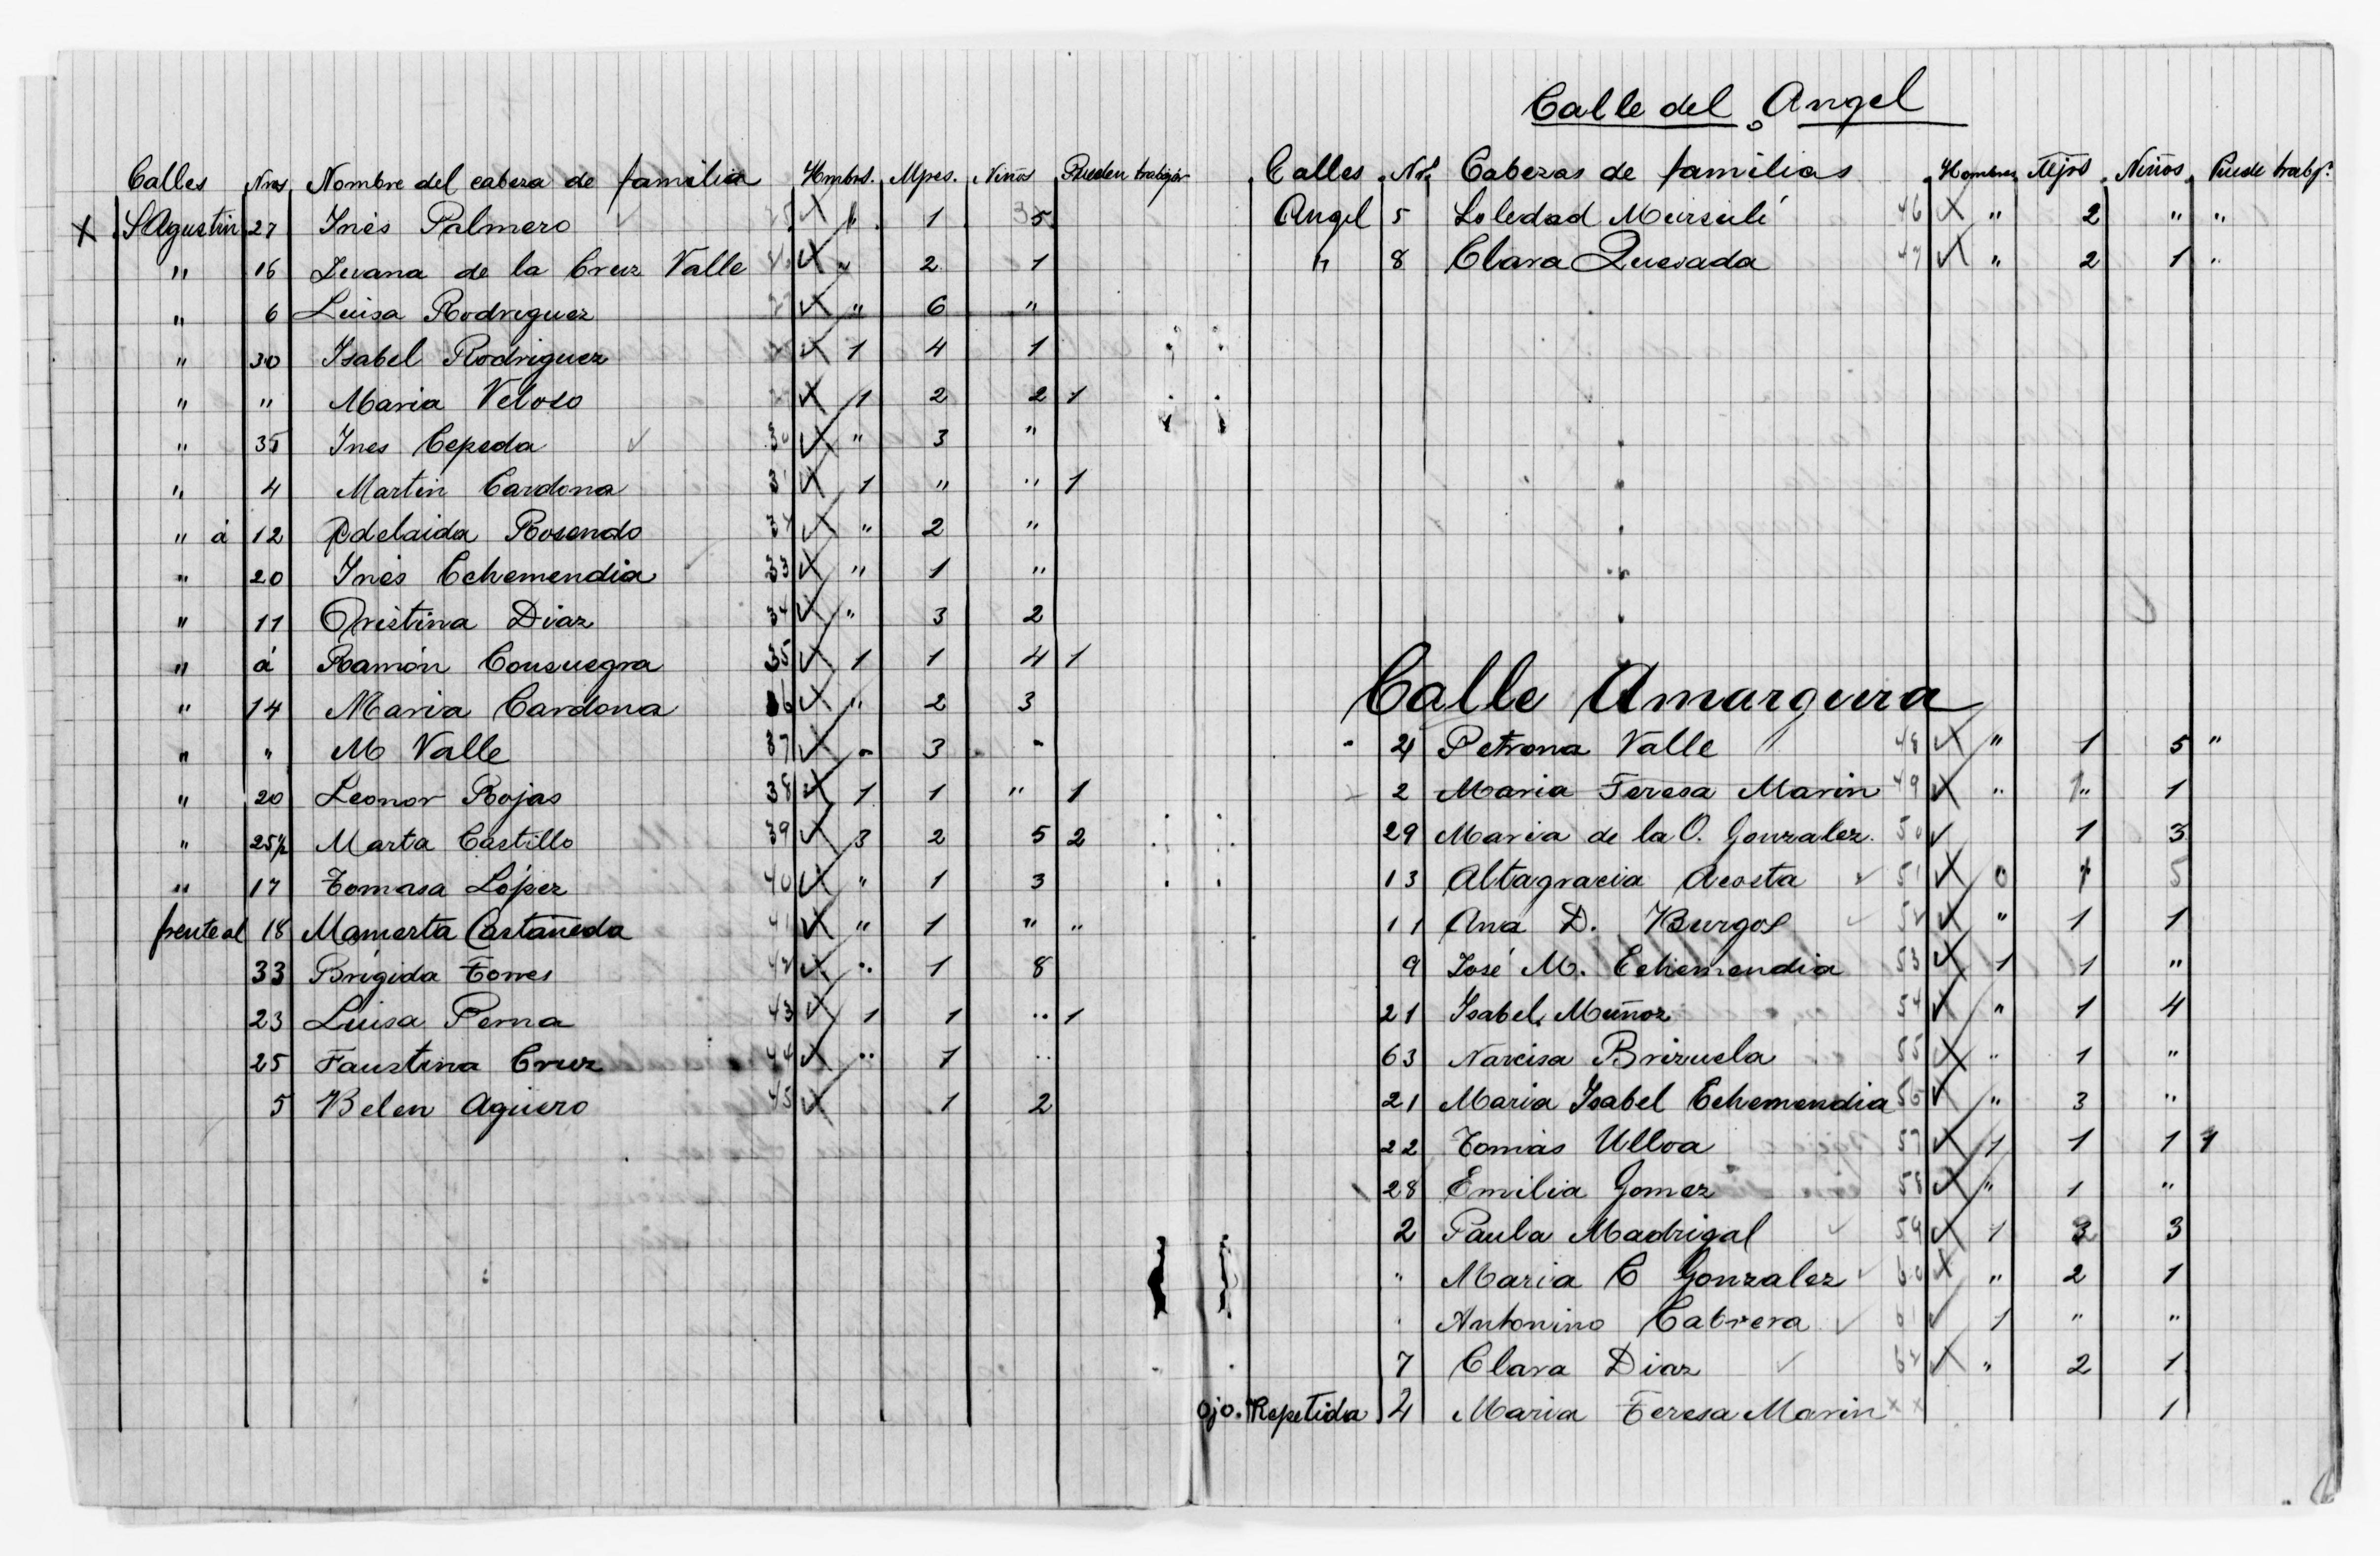 Calles Nros Nombre del cabeza de familia Hmbrs. Mjres. Niños Pueden trabajar
X S Agustin 27 Inés Palmero ✓ X 1 5
" 16 Juana de la Cruz Valle X " 2 1
" 6 Luisa Rodriguez X " 6 "
" 30 Isabel Rodriguez X 1 4 1
" " Maria Veloso X 1 2 2 1
" 35 Ines Cepeda ✓ 30 X " 3 "
" 4 Martin Cardona 31 X 1 " " 1
" á 12 Adelaida Rosendo X " 2 "
" 20 Inés Echemendia ✓ 33 X " 1 "
" 11 Cristina Diaz 34 X " 3 2
" á Ramón Consuegra 35 X 1 1 4 1
" 14 Maria Cardona 36 X " 2 3
" " M Valle 37 X " 3 "
" 20 Leonor Rojas 38 X 1 1 " 1
" 25½ Marta Castillo 39 X 3 2 5 2
" 17 Tomasa López 40 X " 1 3
frente al 18 Mamerta Castañeda 41 X " 1 " "
33 Brígida Torres 42 X " 1 8
23 Luisa Perna 43 X 1 1 " 1
25 Faustina Cruz 44 X " 1 "
5 Belen Agüero 45 X 1 2
Calle del Angel
Calles Nrs. Cabezas de familias Hombres Mjrs Niños Puede trabjr.
Angel 5 Soledad Mursulí 46 X " 2 " "
" 8 Clara Quesada 47 X " 2 1 "
Calle Amargura
" 21 Petrona Valle 48 X " 1 5 "
2 Maria Teresa Marin 49 X " 1
29 Maria de la O. Gonzalez. 50 ✓ 1 3
13 Altagracia Acosta ✓ 51 X 0 5
11 Ana D. Burgos ✓ 52 X " 1 1
9 José M. Echemendia 53 X 1 1 "
21 Isabel Muñoz 54 X " 1 4
63 Narcisa Brizuela 55 X " 1 "
21 Maria Isabel Echemendia 56 X " 3 "
22 Tomás Ulloa 57 X 1 1 1 1
28 Emilia Gomez 58 X " 1 "
2 Paula Madrigal ✓ 59 X 1 3 3
" Maria C Gonzalez ✓ 60 X " 2 1
" Antonino Cabrera ✓ 61 ✓ 1 " "
7 Clara Diaz ✓ 62 X " 2 1
Ojo. Repetida 2 Maria Teresa Marin x x 1